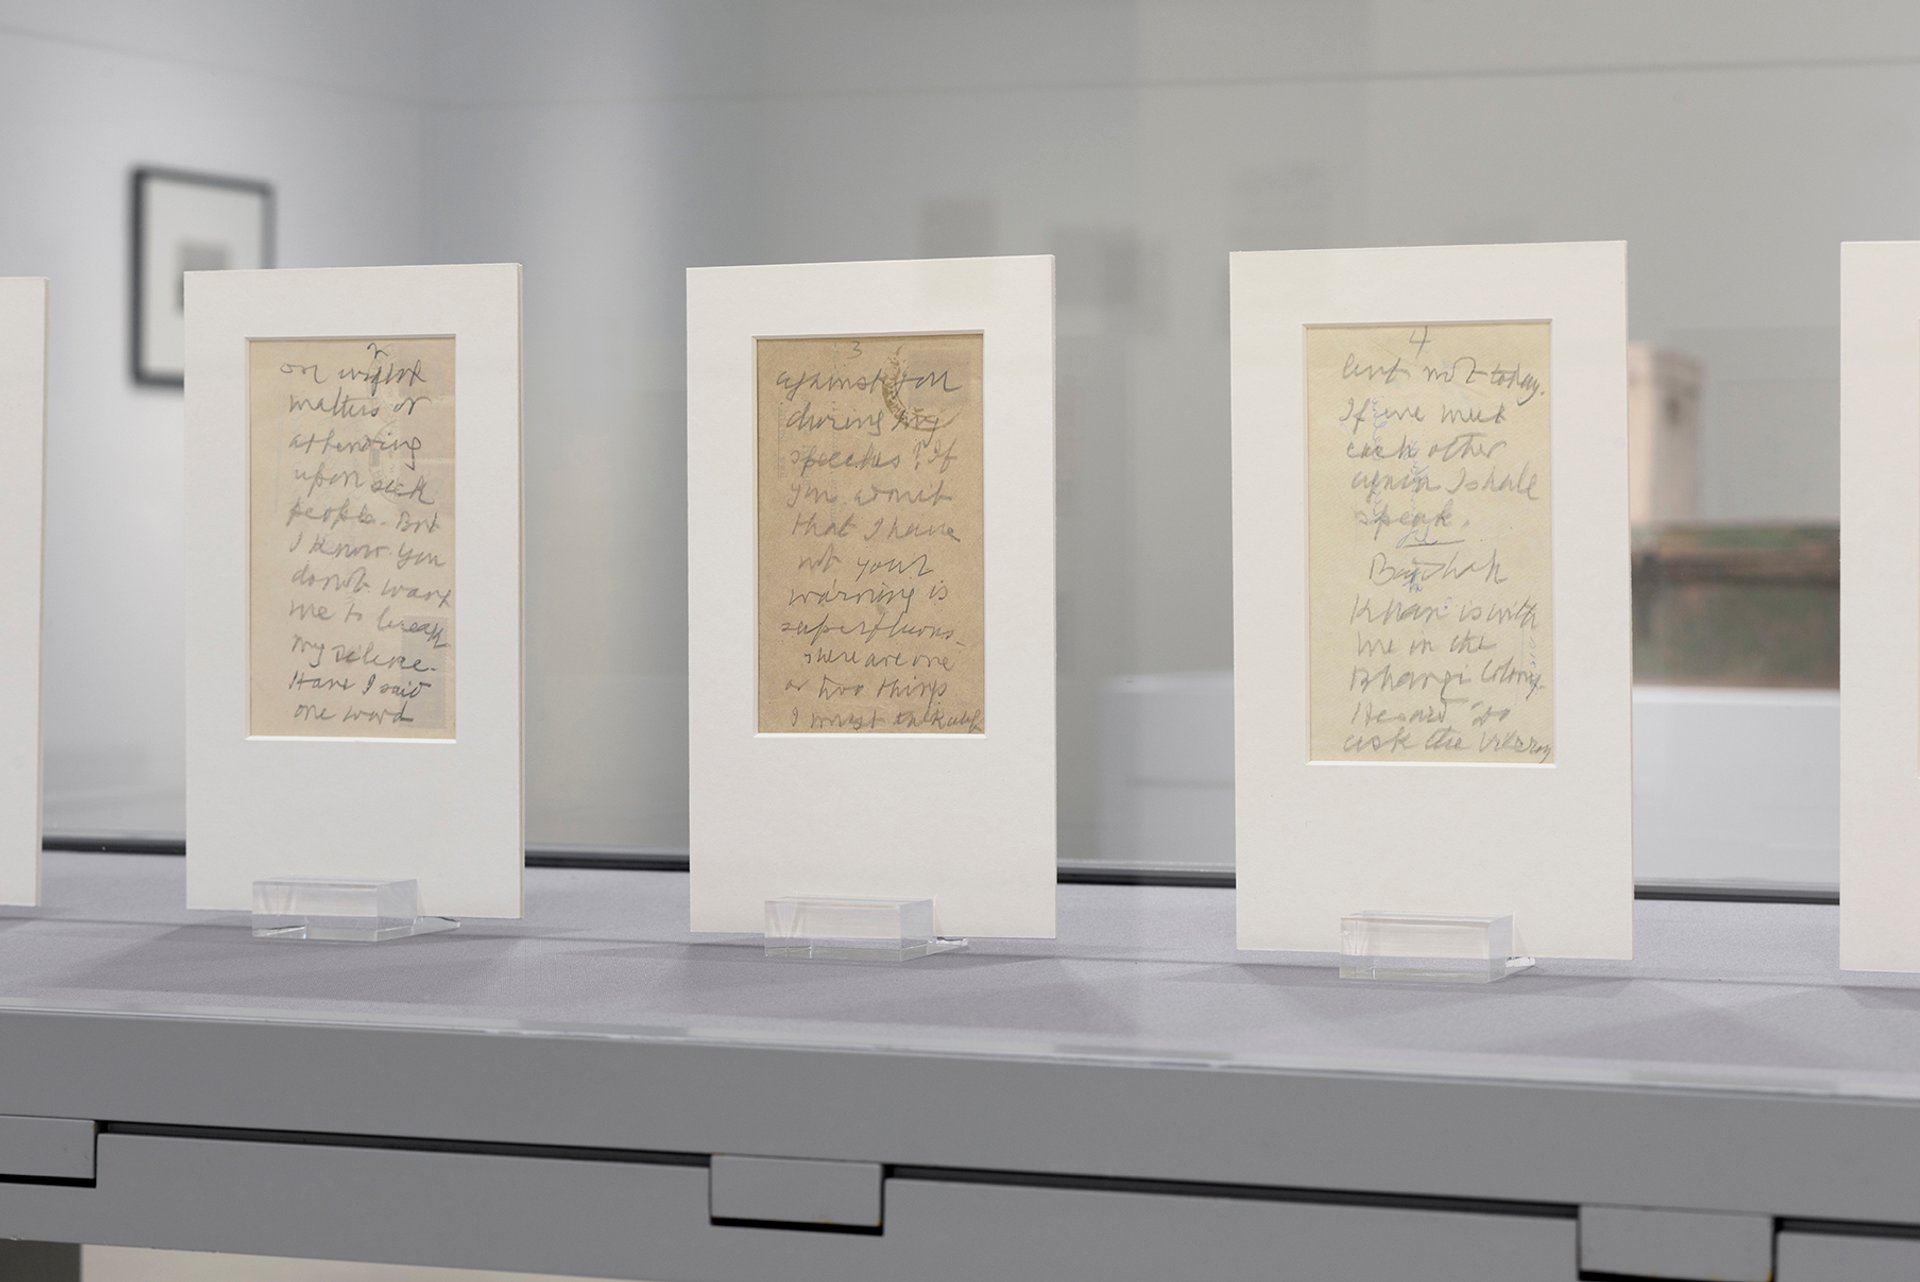 2
on urgent
matters or
attending
upon sick
people. But
I know you
do not want
me to break
my silence.
Have I said
one word
3
against you
during my
speeches? If
you admit
that I have
not your
warning is
superfluous.
There are one
or two things
I must talk about
4
but not today.
If we meet
each other
again I shall
speak.
Badshah
Khan is with
me in the
Bhangi Colony.
He said "do
ask the Viceroy